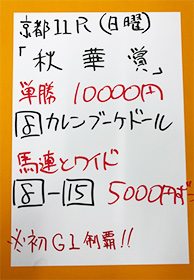 京都11R(日曜)
「秋華賞」
単勝 10000円
8 カレンブーケドール
馬連とワイド
8-15 5000円ずつ
※初G1制覇!!